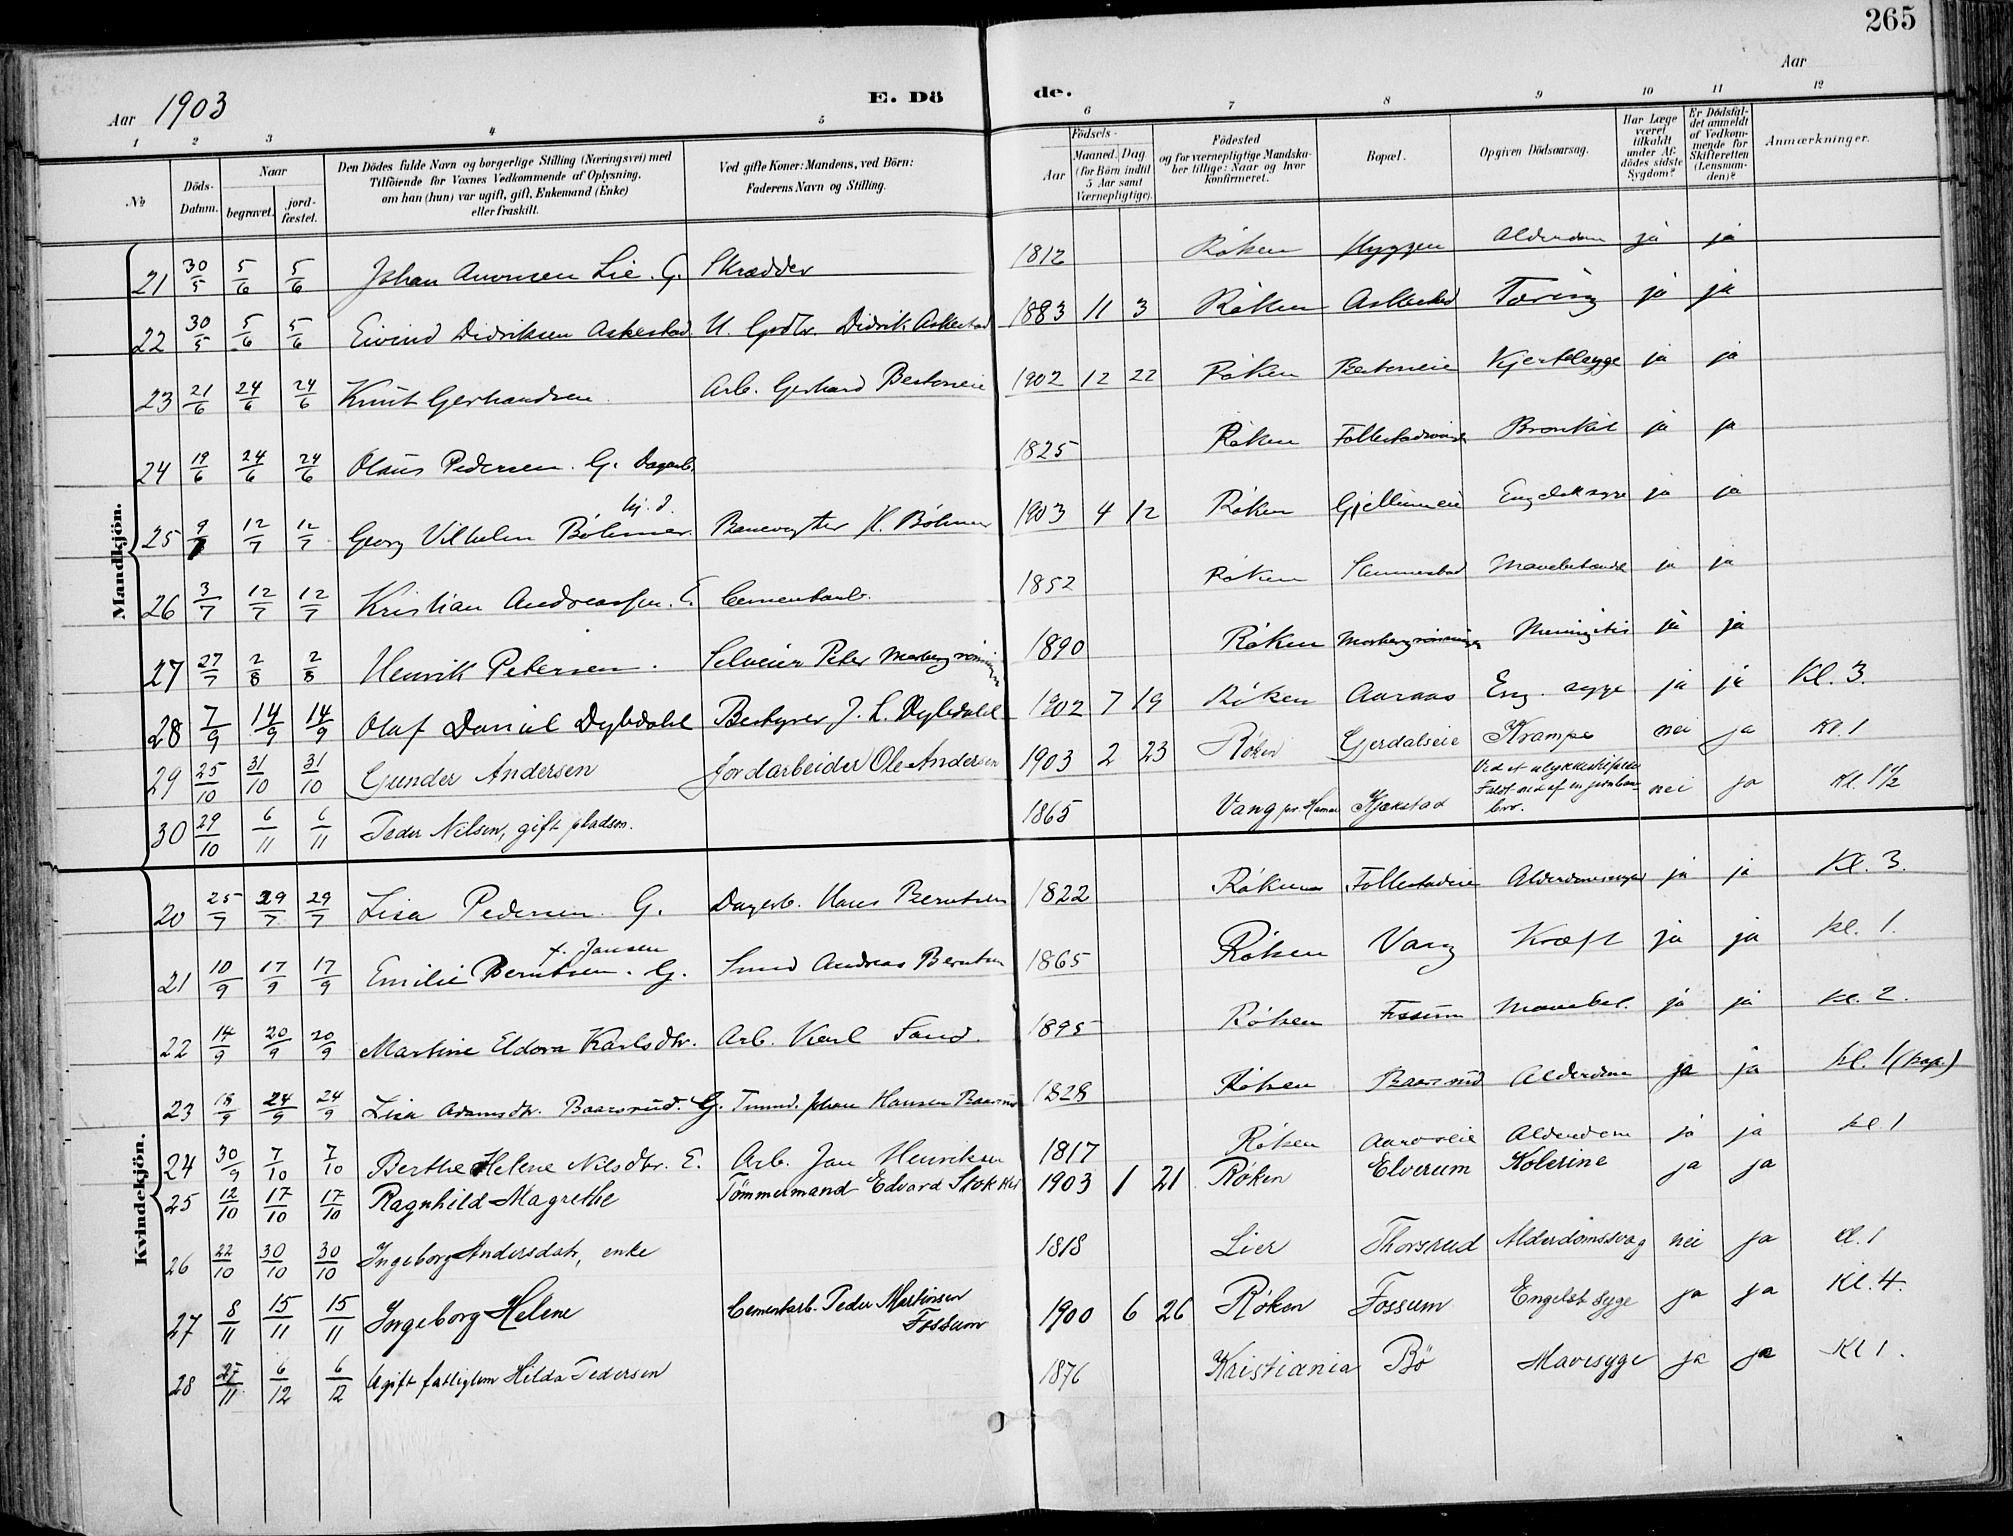 265
Aar 1903
E. Dö de.
Aar
1 2 3 4 5 6 7 8 9 10 11 12
No
Döds-Datum.
Naar
begravet.
jord-fæstet.
Den Dödes fulde Navn og borgerlige Stilling (Næringsvei) med
Tilföiende for Voxnes Vedkommende af Oplysning,
om han (hun) var ugift, gift, Enkemand (Enke)
eller fraskilt.
Ved gifte Koner: Mandens, ved Börn:
Faderens Navn og Stilling.
Födsels-
Aar
Maaned. Dag
(for Börn indtil
5 Aar samt
Værnepligtige).
Födested
og for værnepligtige Mandska-
ber tillige: Naar og hvor
konfirmeret.
Bopæl.
Opgiven Dödsaarsag.
Har Læge
været
tilkaldt
under Af-
dödes sidste
Sygdom?
Er Dödsfal-
det anmeldt
af Vedkom-
mende for
Skifteretten
(Lensman-
den)?
Anmærkninger.
Mandkjön.
21 30/5 5/6 5/6 Johan Lie. G. Skrædder 1812 Røken Hyggen Alderdom ja ja
22 30/5 5/6 5/6 Eivind Didriksen Askestad U. Grdbr. Didrik Askestad 1883 11 3 Røken Askestad Tæring ja ja
23 21/6 24/6 24/6 Knut Gerhardsen Arb. Gerhard 1902 12 22 Røken Kjertelsyge ja ja
24 19/6 24/6 24/6 Olaus Pedersen. G. Dagarb. 1825 Røken Bronkit ja ja
hj. d.
25 9/7 12/7 12/7 Georg Vilhelm Böhmer. Banevogter H. Böhmer 1903 4 12 Røken Gjellumeie Engelsk syge ja ja
26 3/7 12/7 12/7 Kristian Andreassen. E. Cementarb. 1852 Røken ja ja
27 27/7 2/8 2/8 Henrik Petersen. Selveier Peter 1890 Røken Meningitis ja ja
28 7/9 14/9 14/9 Olaf Daniel Dybdahl Bestyrer J. L. Dybdahl 1902 7 19 Røken Aaraas Eng. syge ja ja Kl. 3.
29 25/10 31/10 31/10 Gunder Andersen Jordarbeider Ole Andersen 1903 2 23 Røken Gjerdalseie Krampe nei ja Kl. 1
30 29/10 6/11 6/11 Peder Nilsen, gift pladsm. 1865 Vang pr. Hamar Kjækstad Ved et ulykkestilfælde
Faldt ned af en jernbane
bro. nei ja Kl. 1 1/2
Kvindekjön.
20 25/7 29/7 29/7 Lisa Pedersen. G. Dagarb. Hans Berntsen 1822 Røken Follestadeie ja ja Kl. 3.
f. Jansen
21 10/9 17/9 17/9 Emilie Berntsen. G. Smed Andreas Berntsen 1865 Røken Vang Kræft ja ja kl. 1.
22 14/9 20/9 20/9 Martine Eldora Karlsdtr. Arb. Karl Sand. 1895 Røken Fossum Mavebet. ja ja kl. 2.
23 18/9 24/9 24/9 Lisa Adamsdtr. Baarsrud. G. Johan Hansen Baarsrud 1828 Røken Baarsrud Alderdom ja ja kl. 1 (kap.)
24 30/9 7/10 7/10 Berthe Helene Nilsdtr. E. Arb. Jan Henriksen 1817 Røken Aaroseie Alderdom ja ja kl 1
25 12/10 17/10 17/10 Ragnhild Magrethe Tømmermand Edvard Stokker 1903 1 21 Røken Elverum Kolerine ja ja
26 22/10 30/10 30/10 Ingeborg Andersdatr, enke 1818 Lier Thorsrud Alderdomssvag nei ja kl. 1
27 8/11 15/11 15/11 Ingeborg Helene Cementarb. Peder Martinsen
Fossum 1900 6 26 Røken Fossum Engelsk syge ja ja Kl. 4.
28 27/11 6/12 6/12 Ugift fattiglem Hilda Pedersen 1876 Kristiania Bö Mavesyge ja ja Kl 1.